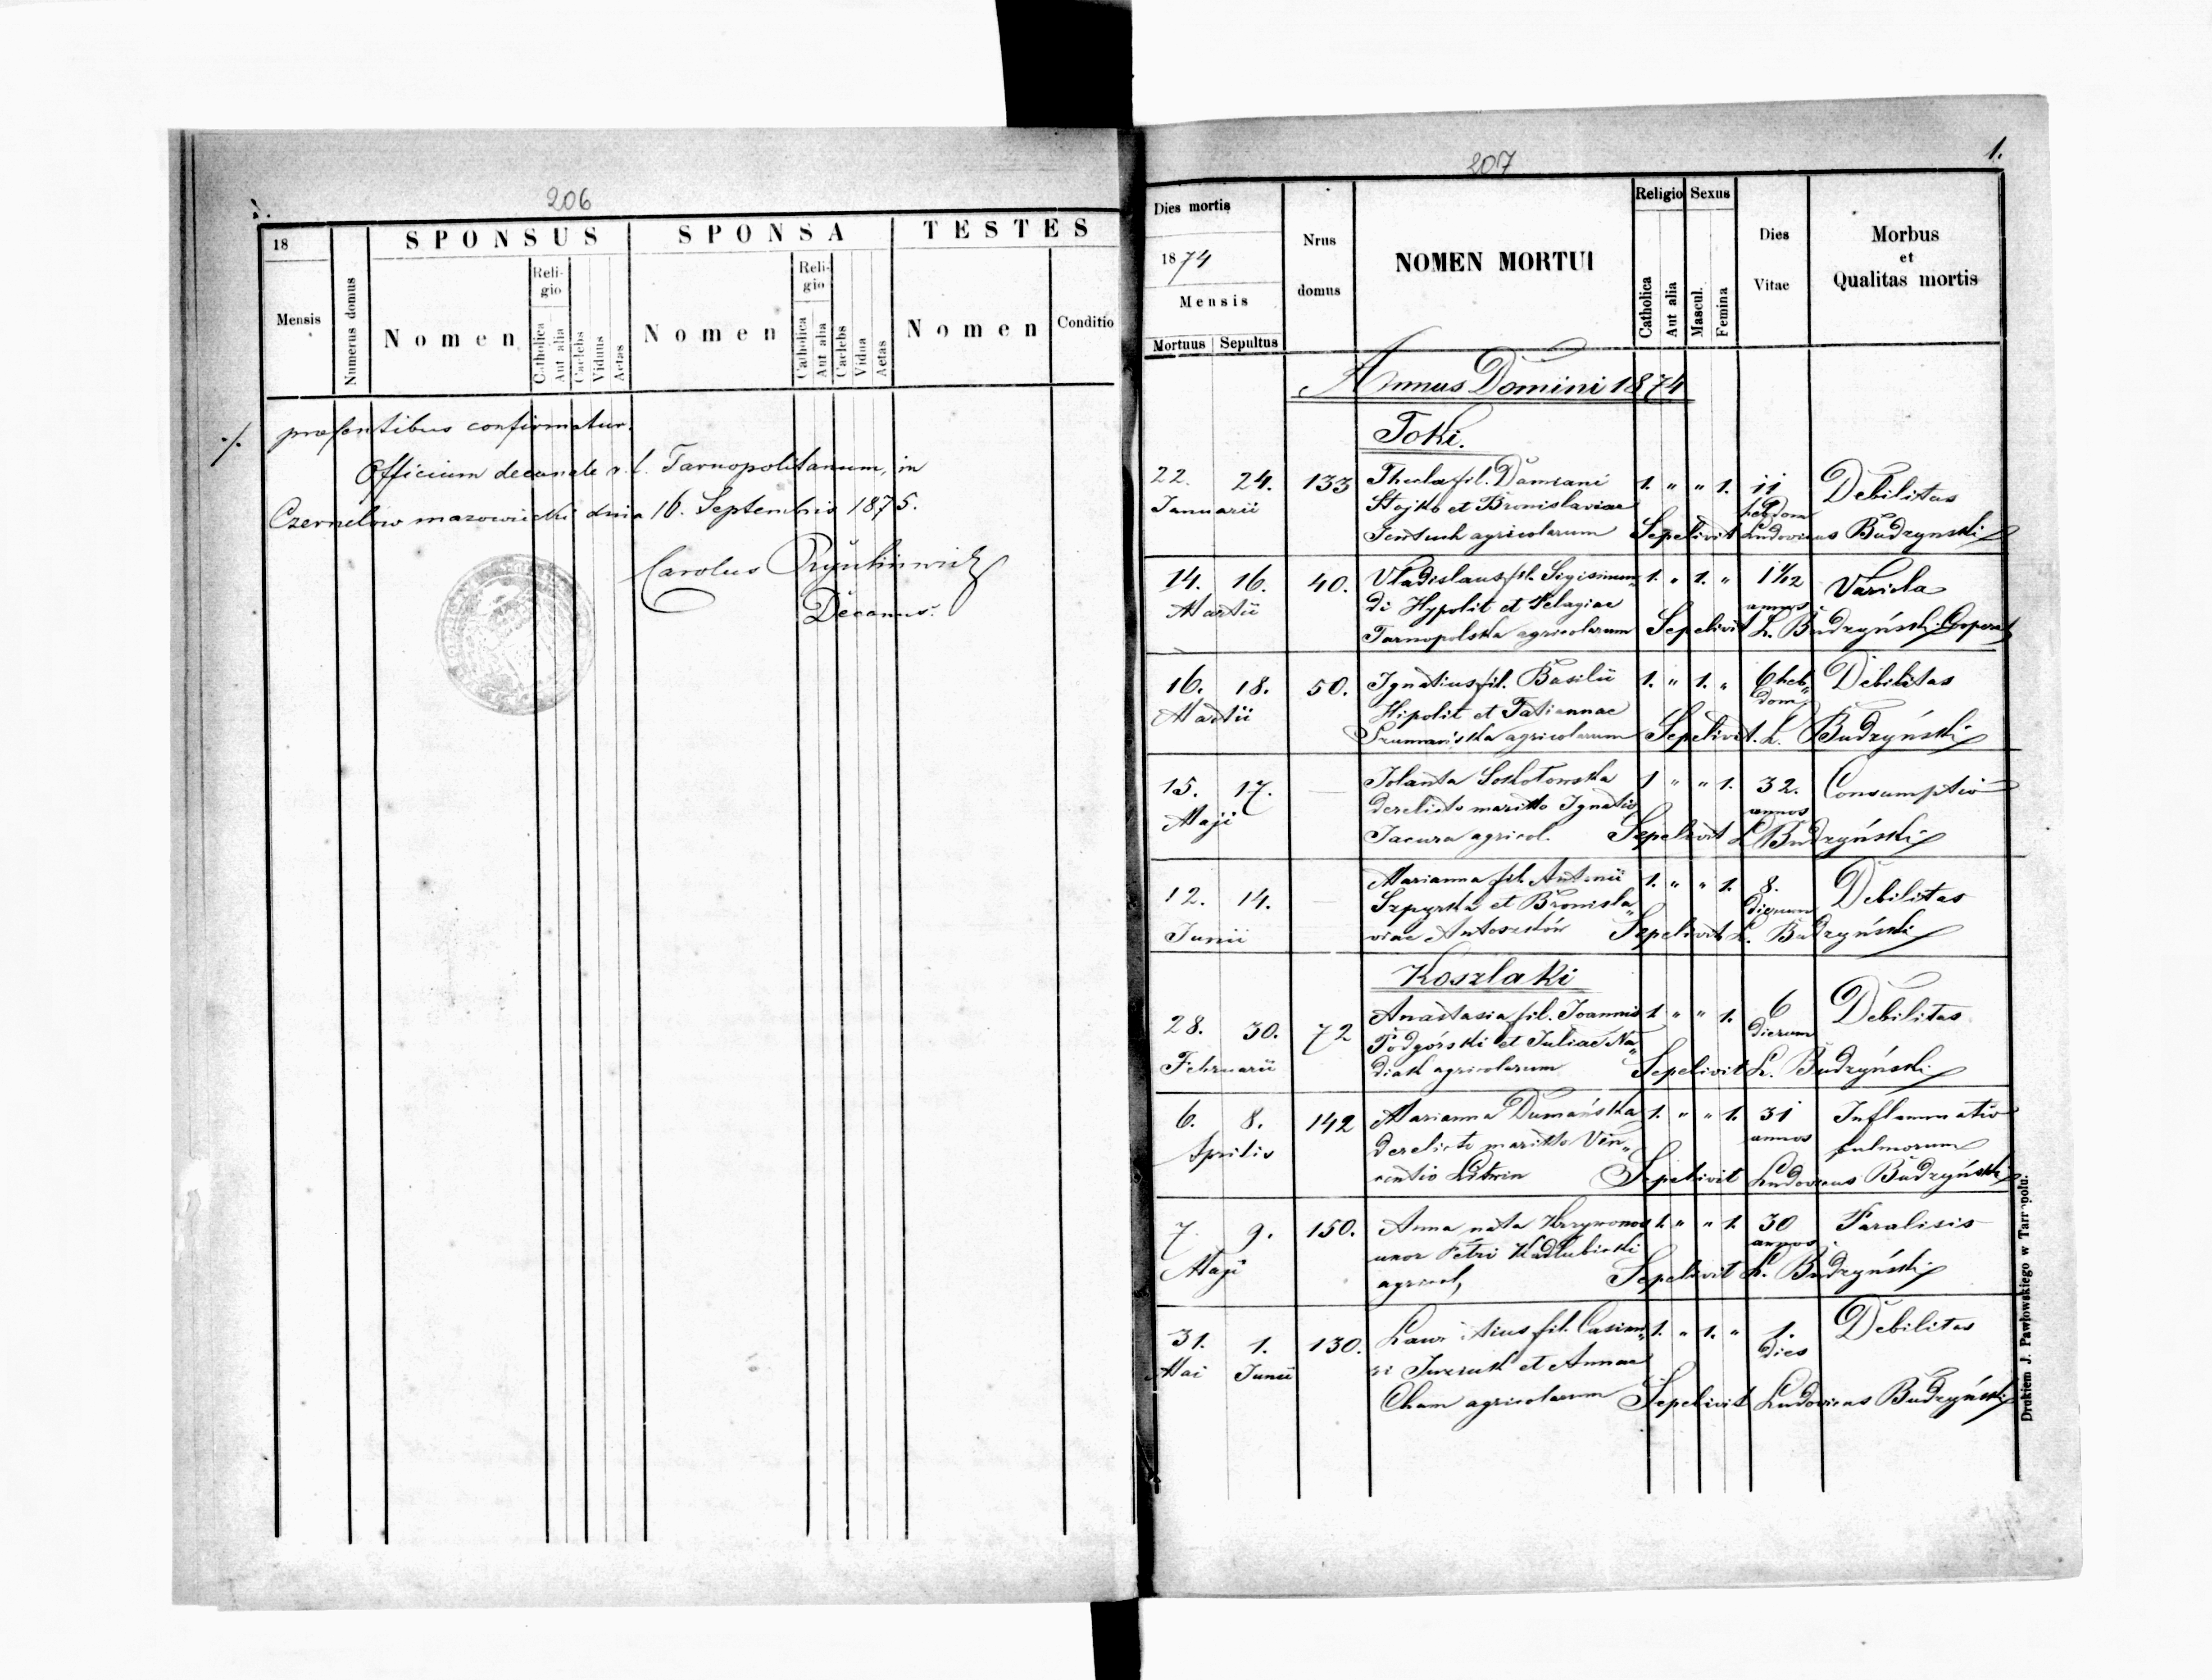 206
18
SPONSUS
SPONSA
TESTES
Mensis
Numerus domus
Nomen
Religio
Catholica
Aut alia
Caelebs
Viduus
Aetas
Nomen
Religio
Catholica
Aut alia
Caelebs
Vidua
Aetas
Nomen
Conditio
./. praesentibus confirmatur.
Officium decanale r. l. Tarnopolitanum, in
Czernelow mazowiecki dnia 16. Septembris 1875.
Carolus
Decanus.
207
1.
Dies mortis
1874
Mensis
Mortuus Sepultus
Nrus domus
NOMEN MORTUI
Religio
Catholica
Aut alia
Sexus
Mascul.
Femina
Dies Vitae
Morbus
et
Qualitas mortis
Annus Domini 1874
Toki.
22. 24. 133 Thecla fil. Damiani 1. " " 1. 11 Debilitas
Januarii Stojko et Bronislaviae hebdom
agricolarum Sepelivit Ludovicus Budzynski
14. 16. 40. Vladislaus fil. Sigismun„ 1. " 1. " 1 1/12 Variola
Martii di Hypolit et Pelagiae annos
Tarnopolska agricolarum Sepelivit L. Budzyński Cooperat
16. 18. 50. Ignatius fil. Basilii 1. " 1. " 6 heb„ Debilitas
Martii Hipolit et Tatiannae dom
Szumańska agricolarum Sepelivit. L. Budzyński
15. 17. — Jolanta Sokołowska 1 " " 1. 32. Consumptio
Maji derelicto maritto Ignatio annos
Jacura agricol. Sepelivit L Budzyński
12. 14. — Marianna fil. Antonii 1. " " 1. 8. Debilitas
Szpyrka et Bronisla„ dierum
Junii viae Antoszków Sepelivit L. Budzyński
Koszlaki
28. 30. 72 Anastasia fil. Joannis 1 " " 1. 6 Debilitas
Podgórski et Juliae Na„ dierum
Februarii diak agricolarum Sepelivit L. Budzyński
6. 8. 142 Marianna Dumańska 1. " " 1. 31 Inflammatio
Aprilis derelicto maritto Vin„ annos pulmorum
centio Litwin Sepelivit Ludovicus Budzyński
7. 9. 150. Anna nata Krzywonos 1. " " 1. 30 Paralisis
Maji uxor Petri Kadlubicki annos
agricol, Sepelivit L. Budzyński
31. 1. 130. fil. Casimi„ 1. " 1. " 1. Debilitas
Mai Junii ri Juzczuk et Annae dies
Cham agricolarum Sepelivit Ludovicus Budzyński
Drukiem J. Pawłowskiego w Tarnopolu.